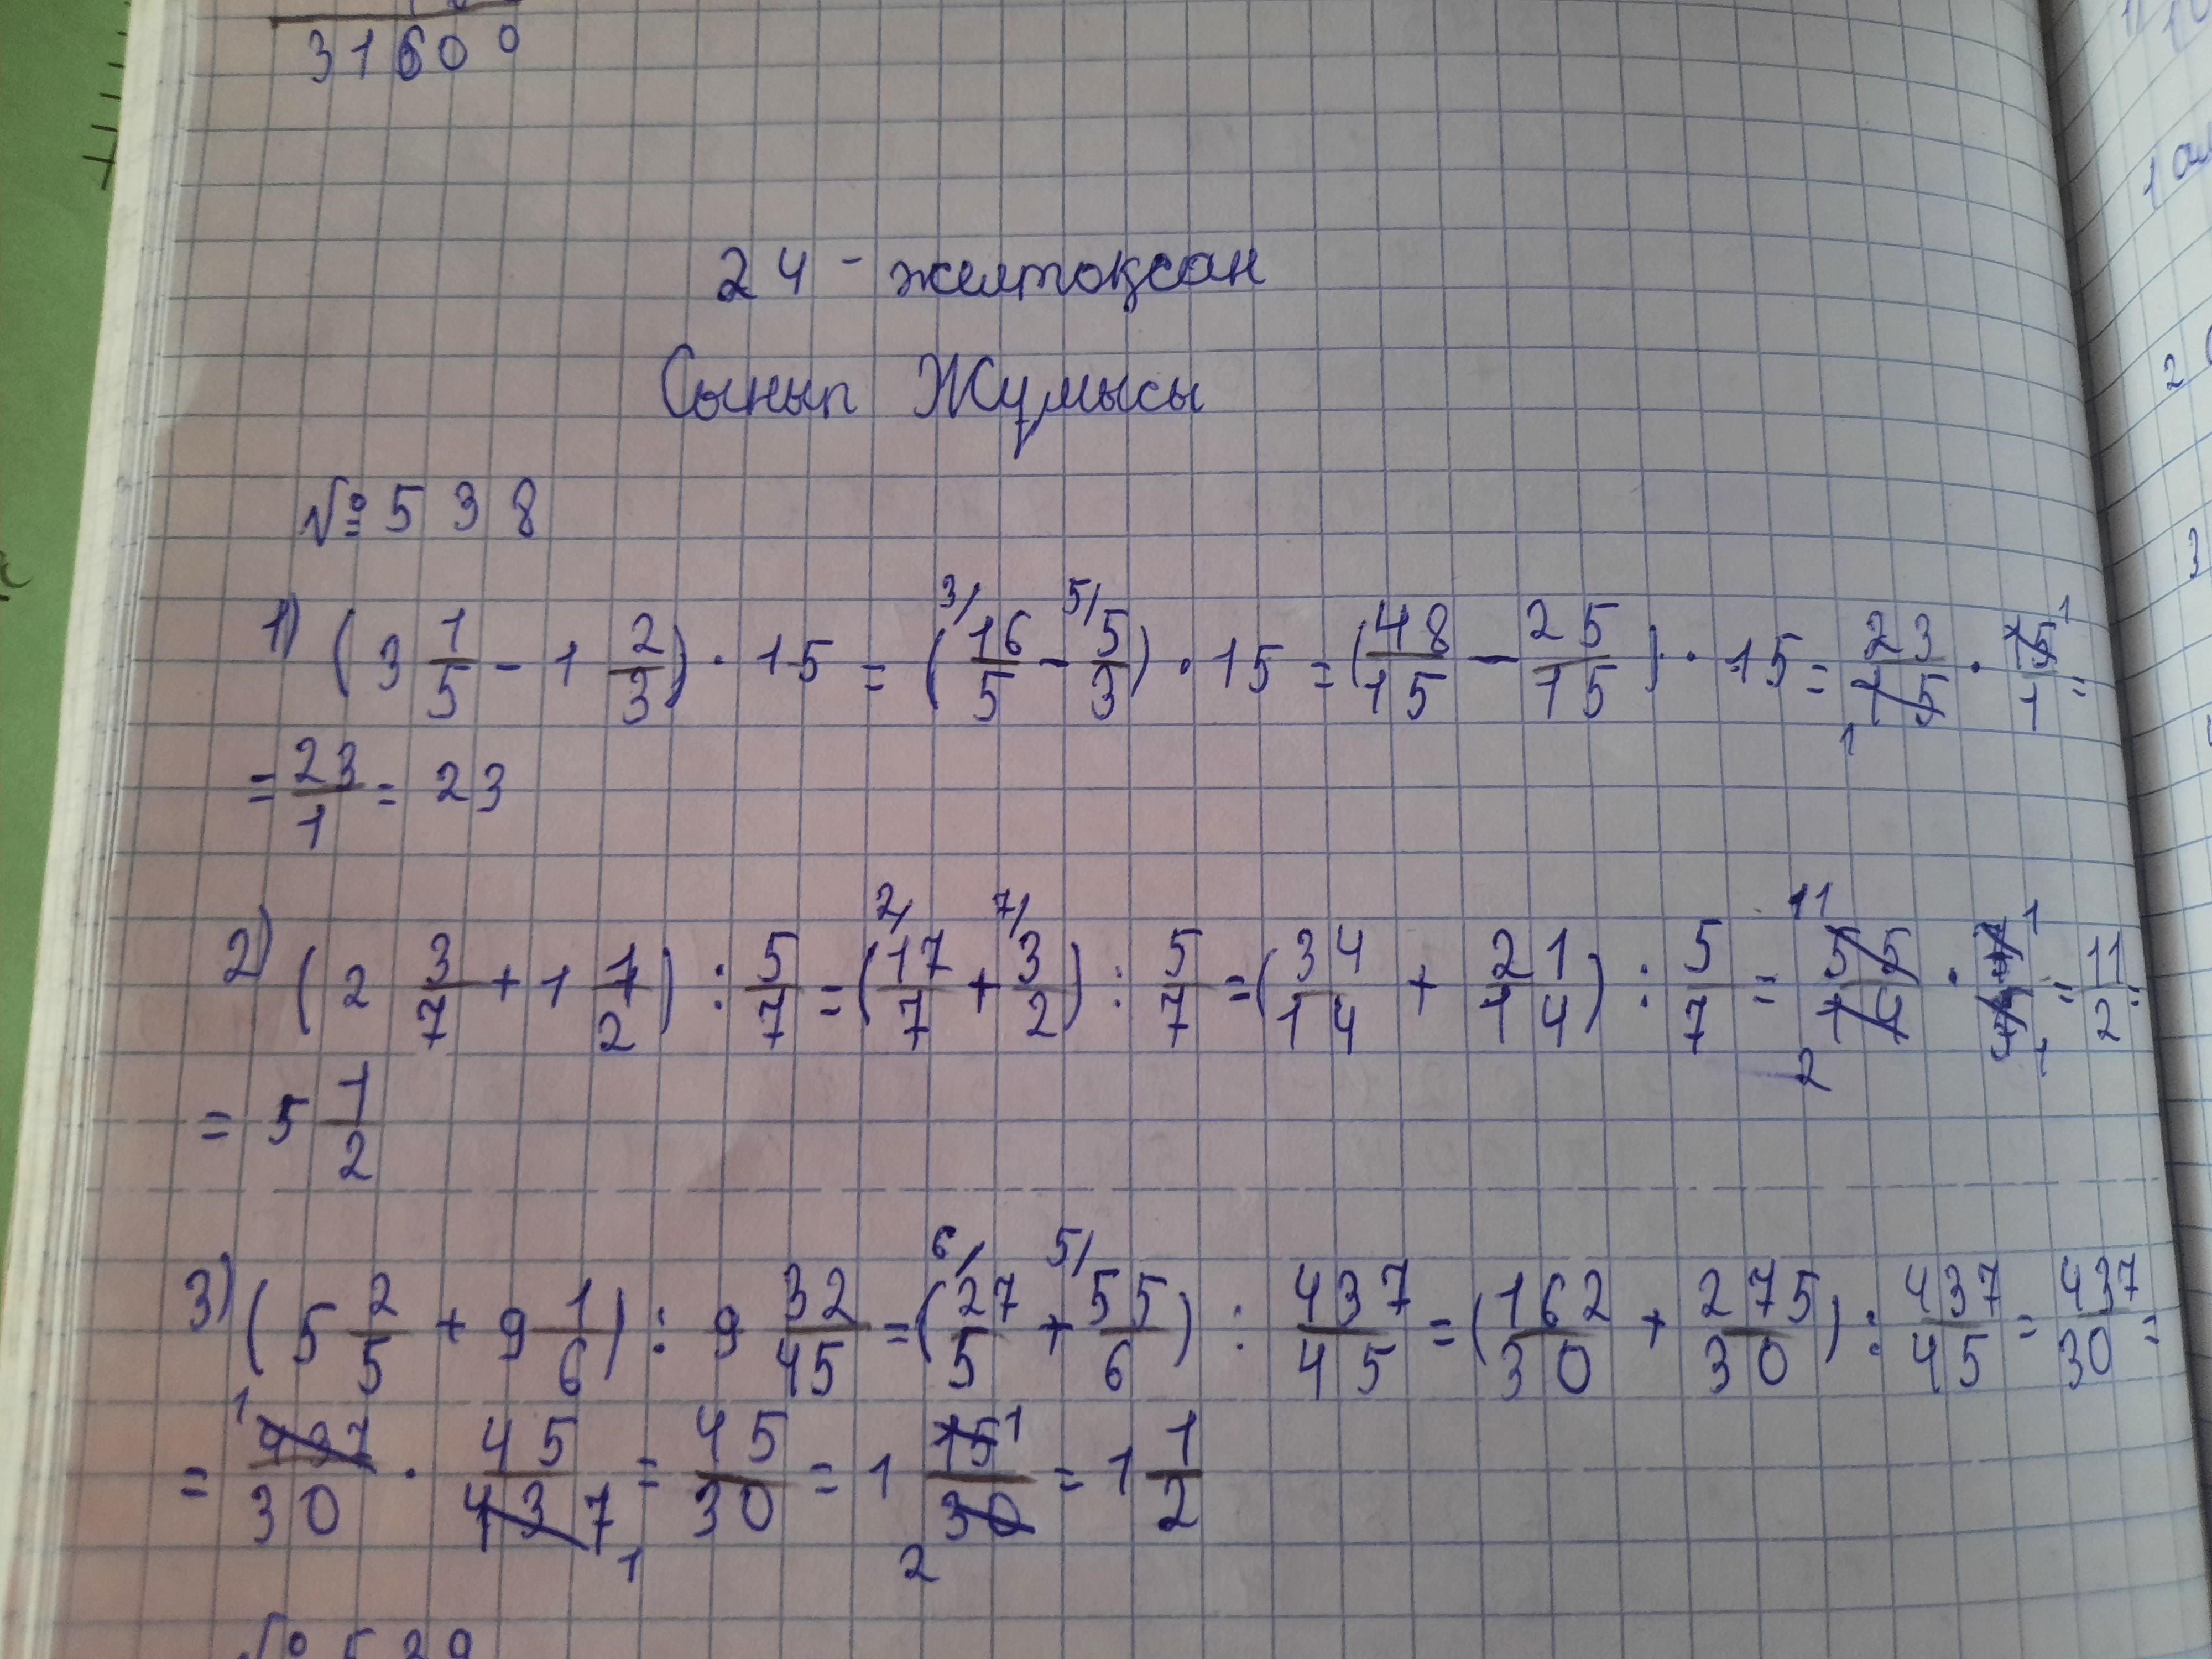 31600
24 - желтоқсан
Сынып Жұмысы
№ 538
1) (3 1/5 - 1 2/3) · 15 = (3/ 16/5 - 5/ 5/3) · 15 = (48/15 - 25/15) · 15 = 23/15 1 · 15/1 1 =
= 23/1 = 23
2) (2 3/7 + 1 1/2) : 5/7 = (2/ 17/7 + 7/ 3/2) : 5/7 = (34/14 + 21/14) : 5/7 = 11 55/14 2 · 7/5 1 1 = 11/2 =
= 5 1/2
3) (5 2/5 + 9 1/6) : 9 32/45 = (6/ 27/5 + 5/ 55/6) : 437/45 = (162/30 + 275/30) : 437/45 = 437/30 =
= 1 437/30 · 45/437 1 = 45/30 = 1 15/30 1 2 = 1 1/2
№ 539